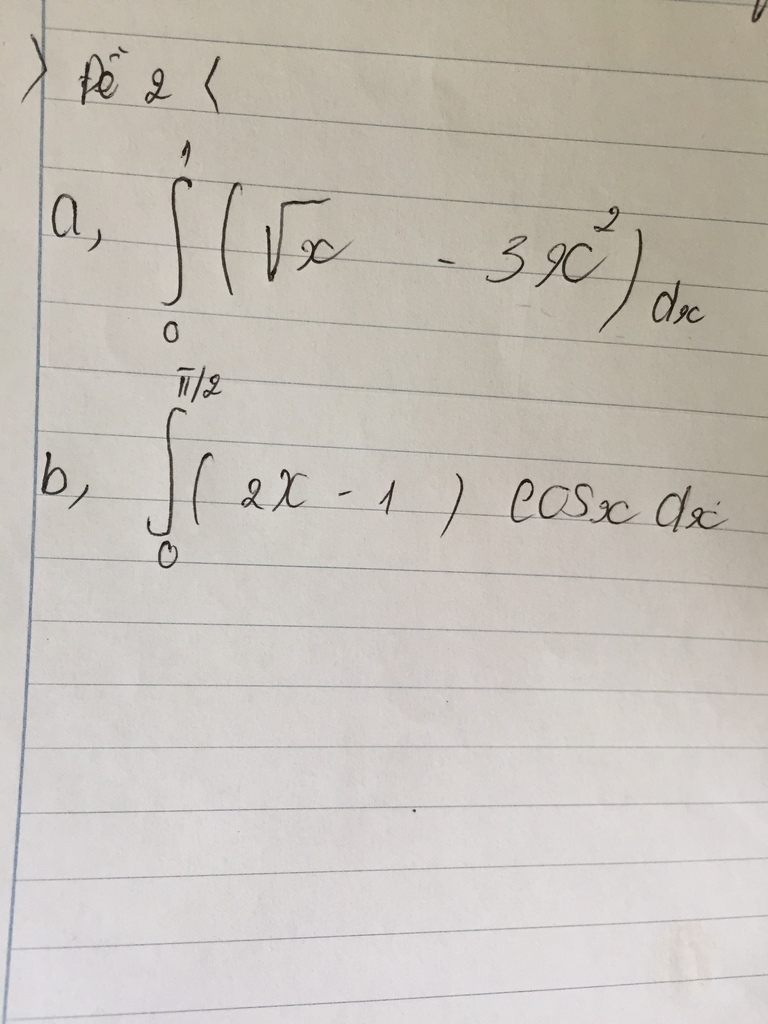 > Đề 2 <
a, ∫₀¹ (√x - 3x²) dx
b, ∫₀^{π/2} (2x - 1) cosx dx